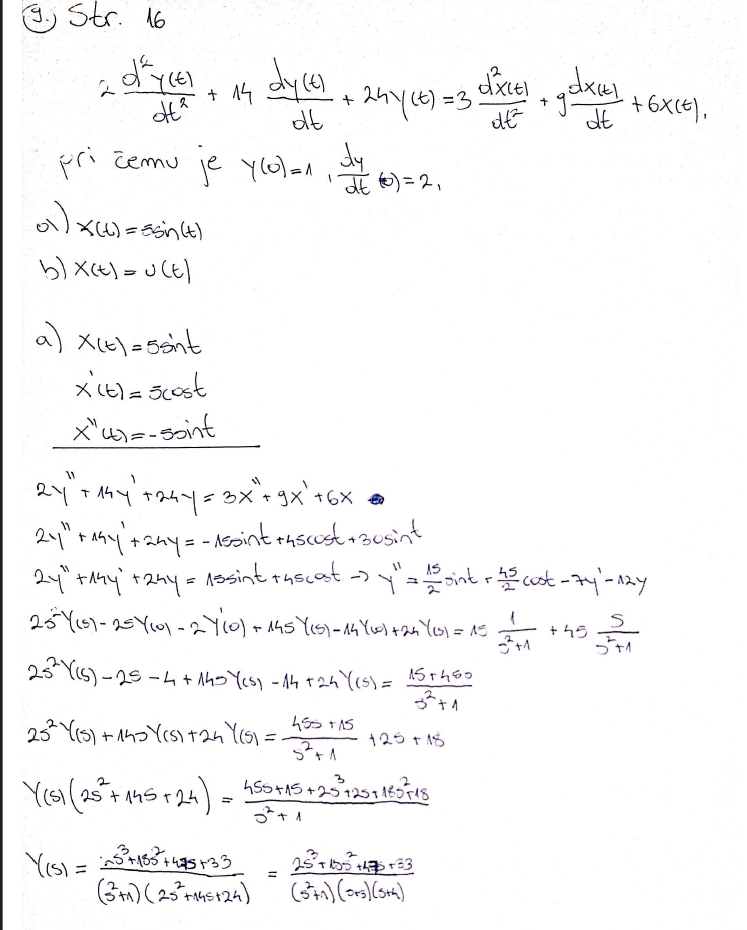 9. Str. 16
2 d²y(t)/dt² + 14 dy(t)/dt + 24y(t) = 3 d²x(t)/dt² + 9 dx(t)/dt + 6x(t),
pri čemu je y(0)=1, dy/dt (0)=2,
a) x(t) = 5sin(t)
b) x(t) = u(t)
a) x(t) = 5sint
x'(t) = 5cost
x''(t) = -5sint
2y'' + 14y' + 24y = 3x'' + 9x' + 6x
2y'' + 14y' + 24y = -15sint + 45cost + 30sint
2y'' + 14y' + 24y = 15sint + 45cost -> y'' = 15/2 sint + 45/2 cost - 7y' - 12y
2s²Y(s) - 2sY(0) - 2Y'(0) + 14sY(s) - 14Y(0) + 24Y(s) = 15 1/(s²+1) + 45 s/(s²+1)
2s²Y(s) - 2s - 4 + 14sY(s) - 14 + 24Y(s) = (15+45s)/(s²+1)
2s²Y(s) + 14sY(s) + 24Y(s) = (45s+15)/(s²+1) + 2s + 18
Y(s)(2s² + 14s + 24) = (45s+15+2s³+2s+18s²+18)/(s²+1)
Y(s) = (2s³+18s²+47s+33)/((s²+1)(2s²+14s+24)) = (2s³+18s²+47s+33)/((s²+1)(s+3)(s+4))